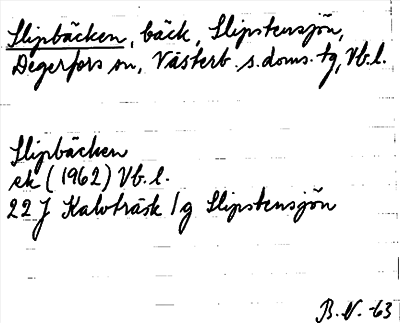 Slipbäcken, bäck, Slipstensjön,
Degerfors sn, Västerb. s. doms. tg, Vb. l.
Slipbäcken
ek (1962) Vb. l.
22 J Kalvträsk 1g Slipstensjön
B. N. -63